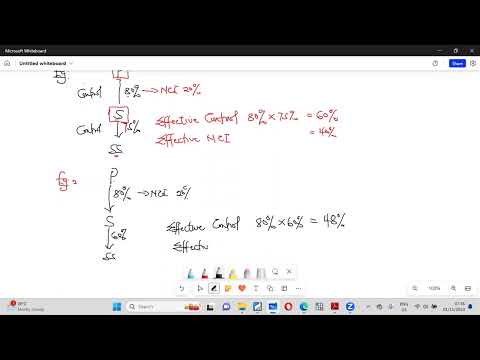 Microsoft Whiteboard
Untitled whiteboard
Share
Eg
P
Control 80% → NCI 20%
S
Control 75% Effective Control 80% × 75% = 60%
Effective NCI = 40%
SS
Eg 2
P
80% → NCI 20%
S
60% Effective Control 80% × 60% = 48%
SS Effectiv
100%
Mostly cloudy
Search
ENG